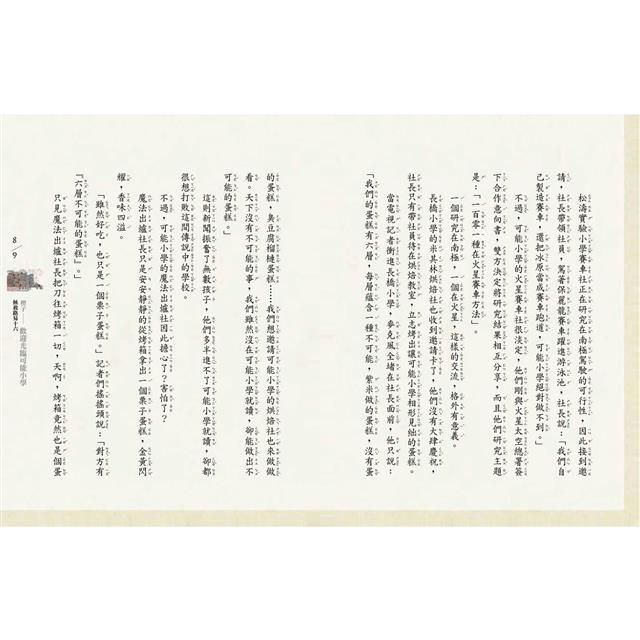 松濤實驗小學賽車社正在研究在南極駕駛的可行性，因此接到邀
請，社長帶領社員，駕著保麗龍賽車躍進游泳池，社長說：「我們自
己製造賽車，還把冰原當成賽車跑道，可能小學絕對做不到。」
不過，可能小學的火星賽車社很淡定，他們剛與火星太空總署簽
下合作意向書，雙方決定將研究結果相互分享，而且他們研究主題
是：「一百零一種在火星賽車方法」。
一個研究在南極，一個在火星，這樣的交流，格外有意義。
長橋小學的米其林烘焙社也收到邀請卡了，他們沒有大肆慶祝，
社長只有帶社員待在烘焙教室，立志烤出讓可能小學相形見絀的蛋糕。
當電視記者衝進長橋小學，麥克風全堵在社長面前，他只說：
「我們的蛋糕有六層，每層蘊含一種不可能，紫米做的蛋糕，沒有蛋
的蛋糕，臭豆腐榴槤蛋糕……我們想邀請可能小學的烘焙社也來做做
看。天下沒有不可能的事，我們雖然沒在可能小學就讀，卻能做出不
可能的蛋糕。」
這則新聞振奮了無數孩子，他們多半進不了可能小學就讀，卻都
很想打敗這間傳說中的學校。
不過，可能小學的魔法出爐社因此擔心了？害怕了？
魔法出爐社長只是安安靜靜的從烤箱拿出一個栗子蛋糕，金黃閃
耀，香味四溢。
「雖然好吃，也只是一個栗子蛋糕。」記者們搖搖頭說：「對方有
『六層不可能的蛋糕』。」
只見魔法出爐社長把刀往烤箱一切，天啊，烤箱竟然也是個蛋
8／9
楔子 歡迎光臨可能小學
拯救路易十六